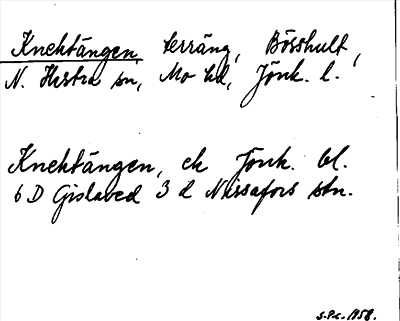 Knektängen, terräng, Bösshult,
N. Hestra sn, Mo hd, Jönk. l.
Knektängen, ek Jönk. bl.
6 D Gislaved 3 d Nissafors stn.
S.P.c. 1958.